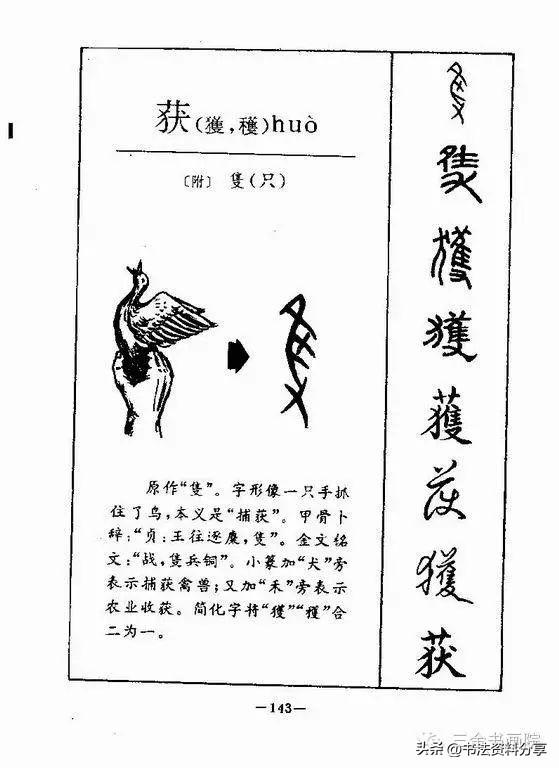 获(獲,穫)huò
〔附〕 隻(只)
原作“隻”。字形像一只手抓
住了鸟,本义是“捕获”。甲骨卜
辞:“贞:王往逐麋,隻”。金文铭
文:“战,隻兵铜”。小篆加“犬”旁
表示捕获禽兽;又加“禾”旁表示
农业收获。简化字将“獲”“穫”合
二为一。
隻
獲
獲
獲
獲
获
—143—
头条 @书法资料分享